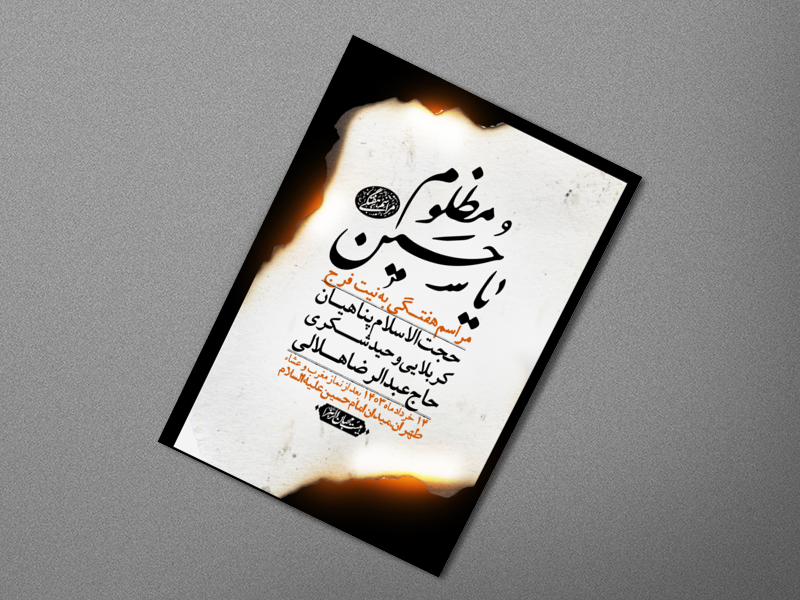 یاحسین مظلوم
مراسم هفتگی
مراسم هفتگی به نیت فرج
حجت الاسلام پناهیان
کربلایی وحید شکری
حاج عبدالرضا هلالی
۱۴ خرداد ماه ۱۴۰۳ بعد از نماز مغرب و عشاء
طهران.میدان امام حسین علیه السلام